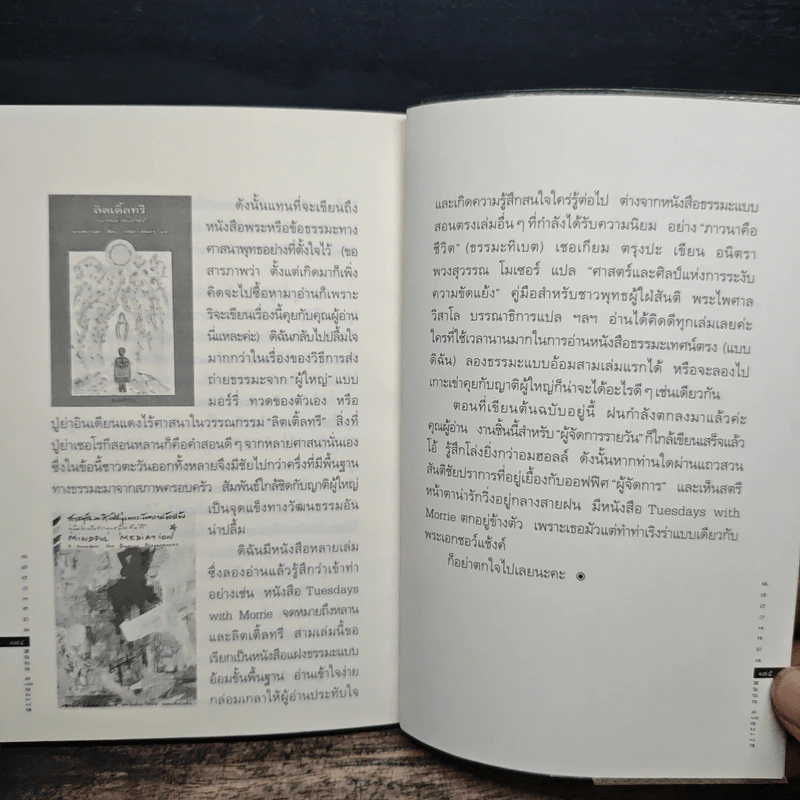 ลิตเติ้ลทรี
ดังนั้นแทนที่จะเขียนถึง
หนังสือพระหรือข้อธรรมะทาง
ศาสนาพุทธอย่างที่ตั้งใจไว้ (ขอ
สารภาพว่า ตั้งแต่เกิดมาก็เพิ่ง
คิดจะไปซื้อหามาอ่านก็เพราะ
ริจะเขียนเรื่องนี้คุยกับคุณผู้อ่าน
นี่แหละค่ะ) ดิฉันกลับไปปลื้มใจ
มากกว่าในเรื่องของวิธีการส่ง
ถ่ายธรรมะจาก “ผู้ใหญ่” แบบ
มอร์รี่ ทวดของตัวเอง หรือ
ปู่ย่าอินเดียนแดงไร้ศาสนาในวรรณกรรม “ลิตเติ้ลทรี” สิ่งที่
ปู่ย่าเชอโรกีสอนหลานก็คือคำสอนดี ๆ จากหลายศาสนานั่นเอง
ซึ่งในข้อนี้ชาวตะวันออกทั้งหลายจึงมีชัยไปกว่าครึ่งที่มีพื้นฐาน
ทางธรรมะมาจากสภาพครอบครัว สัมพันธ์ใกล้ชิดกับญาติผู้ใหญ่
เป็นจุดแข็งทางวัฒนธรรมอัน
น่าปลื้ม
MINDFUL MEDIATION
ดิฉันมีหนังสือหลายเล่ม
ซึ่งลองอ่านแล้วรู้สึกว่าเข้าท่า
อย่างเช่น หนังสือ Tuesdays
with Morrie จดหมายถึงหลาน
และลิตเติ้ลทรี สามเล่มนี้ขอ
เรียกเป็นหนังสือแฝงธรรมะแบบ
อ้อมขั้นพื้นฐาน อ่านเข้าใจง่าย
กล่อมเกลาให้ผู้อ่านประทับใจ
และเกิดความรู้สึกสนใจใคร่รู้ต่อไป ต่างจากหนังสือธรรมะแบบ
สอนตรงเล่มอื่น ๆ ที่กำลังได้รับความนิยม อย่าง “ภาวนาคือ
ชีวิต” (ธรรมะทิเบต) เชอเกียม ตรุงปะ เขียน อนิตรา
พวงสุวรรณ โมเซอร์ แปล “ศาสตร์และศิลป์แห่งการระงับ
ความขัดแย้ง” คู่มือสำหรับชาวพุทธผู้ใฝ่สันติ พระไพศาล
วิสาโล บรรณาธิการแปล ฯลฯ อ่านได้คิดดีทุกเล่มเลยค่ะ
ใครที่ใช้เวลานานมากในการอ่านหนังสือธรรมะเทศน์ตรง (แบบ
ดิฉัน) ลองธรรมะแบบอ้อมสามเล่มแรกได้ หรือจะลองไป
เกาะเข่าคุยกับญาติผู้ใหญ่ก็น่าจะได้อะไรดี ๆ เช่นเดียวกัน
ตอนที่เขียนต้นฉบับอยู่นี้ ฝนกำลังตกลงมาแล้วค่ะ
คุณผู้อ่าน งานชิ้นนี้สำหรับ “ผู้จัดการรายวัน” ก็ใกล้เขียนเสร็จแล้ว
โอ้ รู้สึกโล่งยิ่งกว่าอมฮอลล์ ดังนั้นหากท่านใดผ่านแถวสวน
สันติชัยปราการที่อยู่เยื้องกับออฟฟิศ “ผู้จัดการ” และเห็นสตรี
หน้าตาน่ารักวิ่งอยู่กลางสายฝน มีหนังสือ Tuesdays with
Morrie ตกอยู่ข้างตัว เพราะเธอมัวแต่ทำท่าเริงร่าแบบเดียวกับ
พระเอกชอว์แช้งค์
ก็อย่าตกใจไปเลยนะคะ